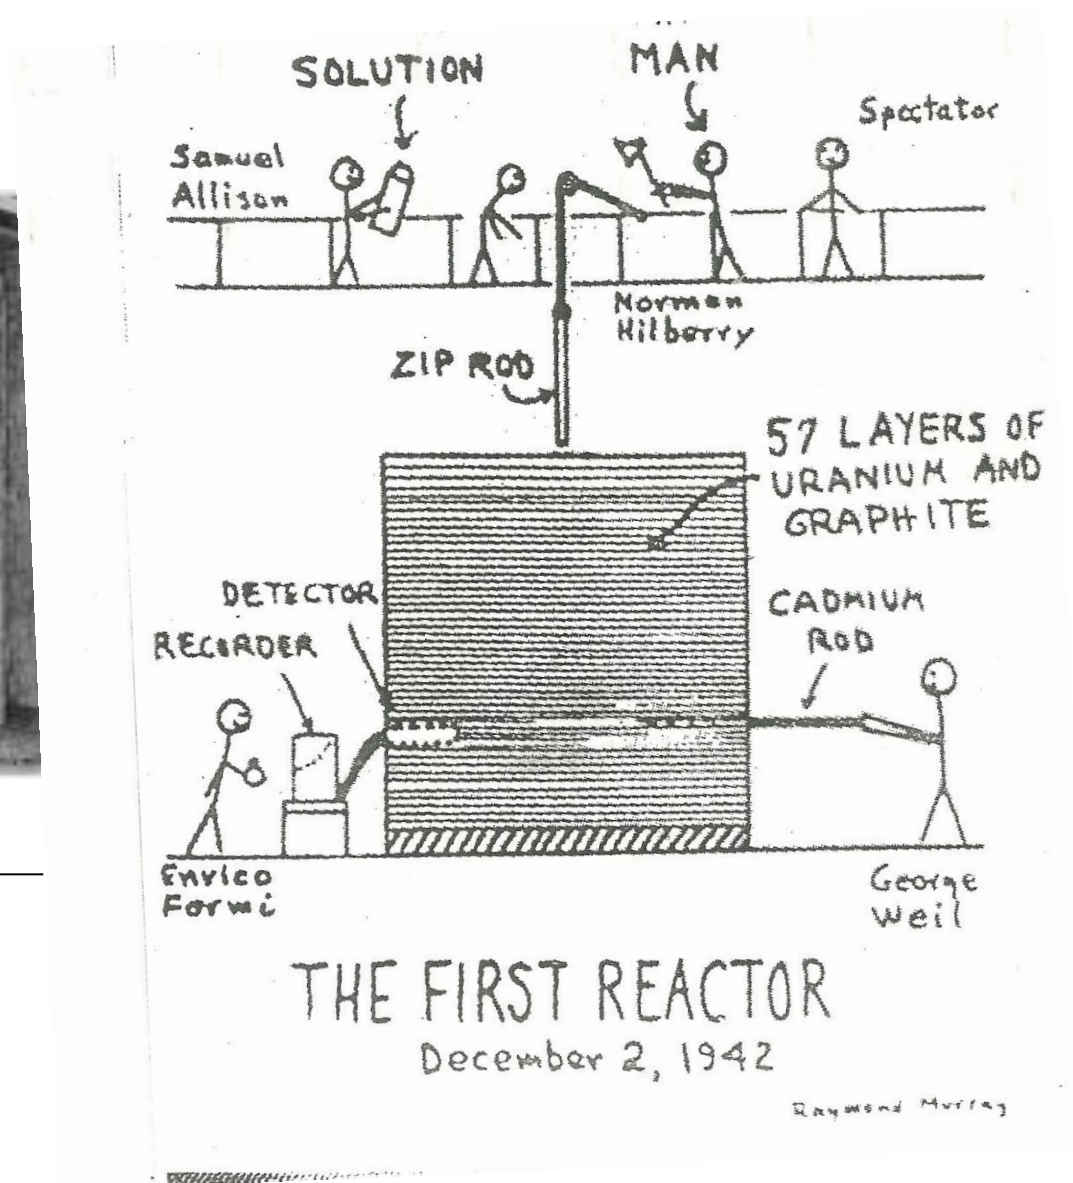 SOLUTION
MAN
Spectator
Samuel
Allison
Norman
Hilberry
ZIP ROD
57 LAYERS OF
URANIUM AND
GRAPHITE
DETECTOR
RECORDER
CADMIUM
ROD
Enrico
Formi
George
Weil
THE FIRST REACTOR
December 2, 1942
Raymond Murray